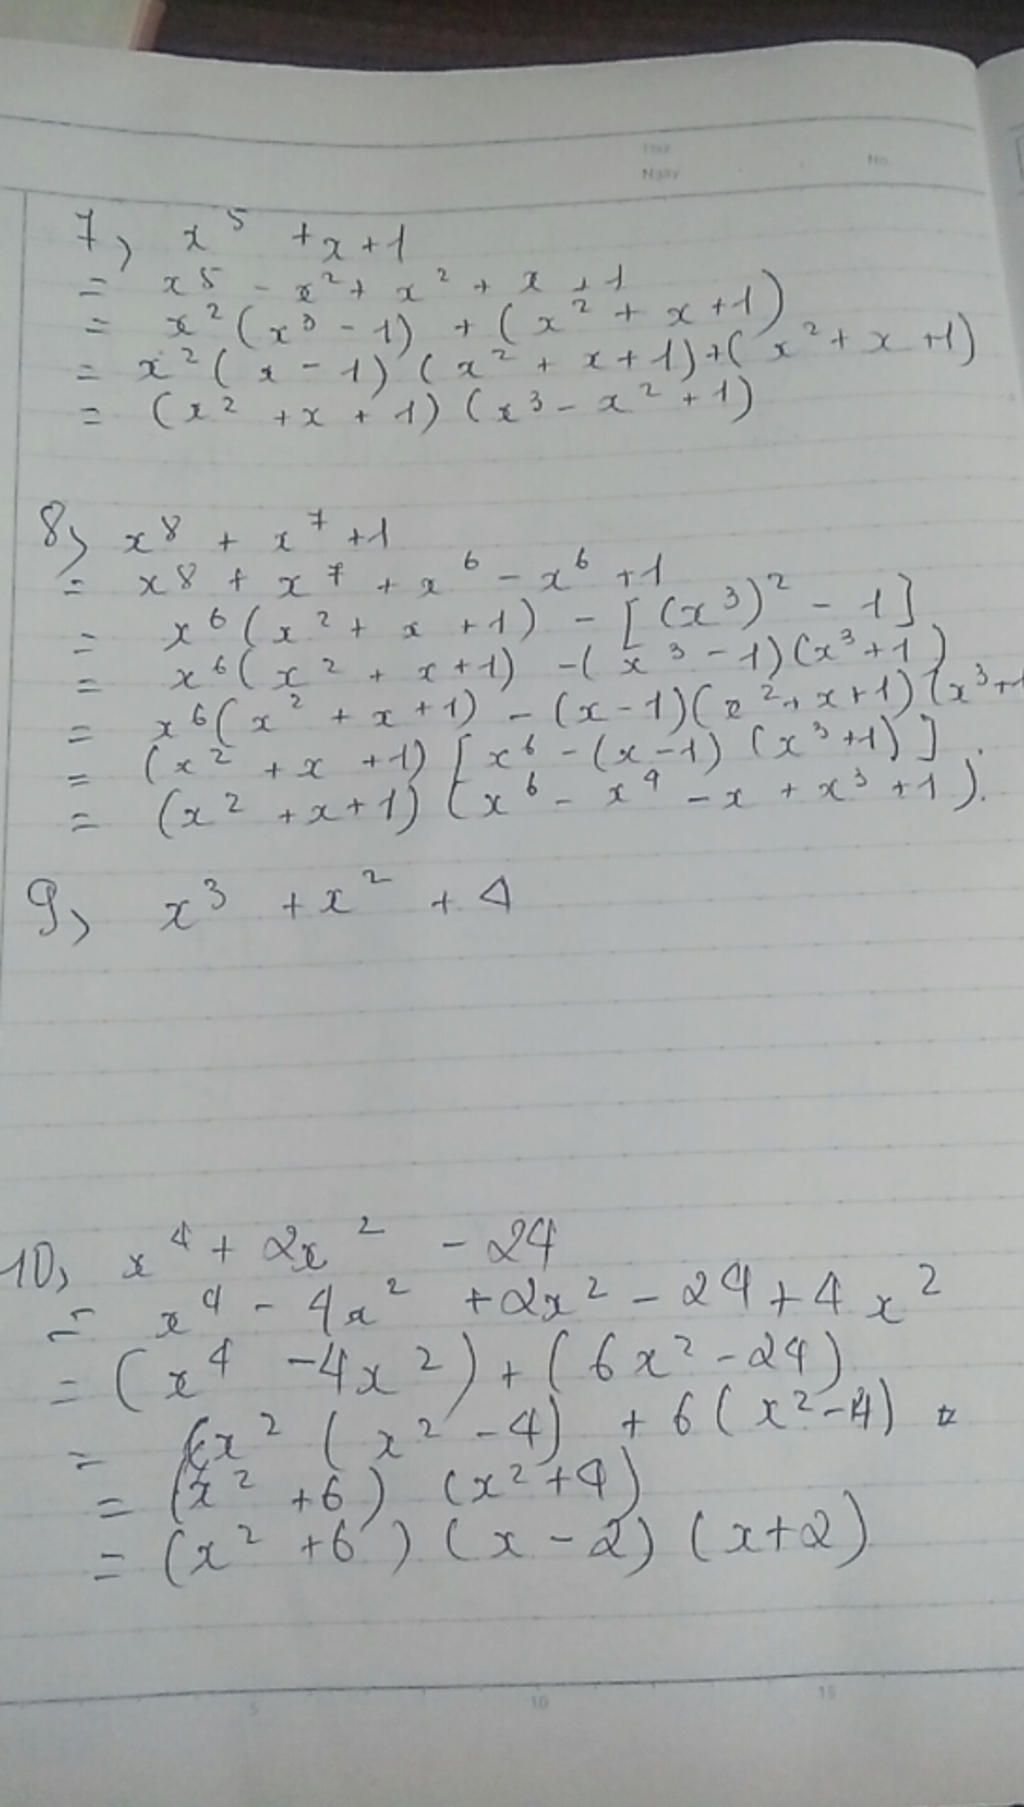 Thứ
Ngày No.
7, x⁵ + x + 1
= x⁵ - x² + x² + x + 1
= x²(x³ - 1) + (x² + x + 1)
= x²(x - 1)(x² + x + 1) + (x² + x + 1)
= (x² + x + 1)(x³ - x² + 1)
8, x⁸ + x⁷ + 1
= x⁸ + x⁷ + x⁶ - x⁶ + 1
= x⁶(x² + x + 1) - [(x³)² - 1]
= x⁶(x² + x + 1) - (x³ - 1)(x³ + 1)
= x⁶(x² + x + 1) - (x - 1)(x² + x + 1)(x³ + 1
= (x² + x + 1)[x⁶ - (x - 1)(x³ + 1)].
= (x² + x + 1)(x⁶ - x⁴ - x + x³ + 1).
9, x³ + x² + 4
10, x⁴ + 2x² - 24
= x⁴ - 4x² + 2x² - 24 + 4x²
= (x⁴ - 4x²) + (6x² - 24)
= x²(x² - 4) + 6(x² - 4)
= (x² + 6)(x² + 4)
= (x² + 6)(x - 2)(x + 2)
5 10 15